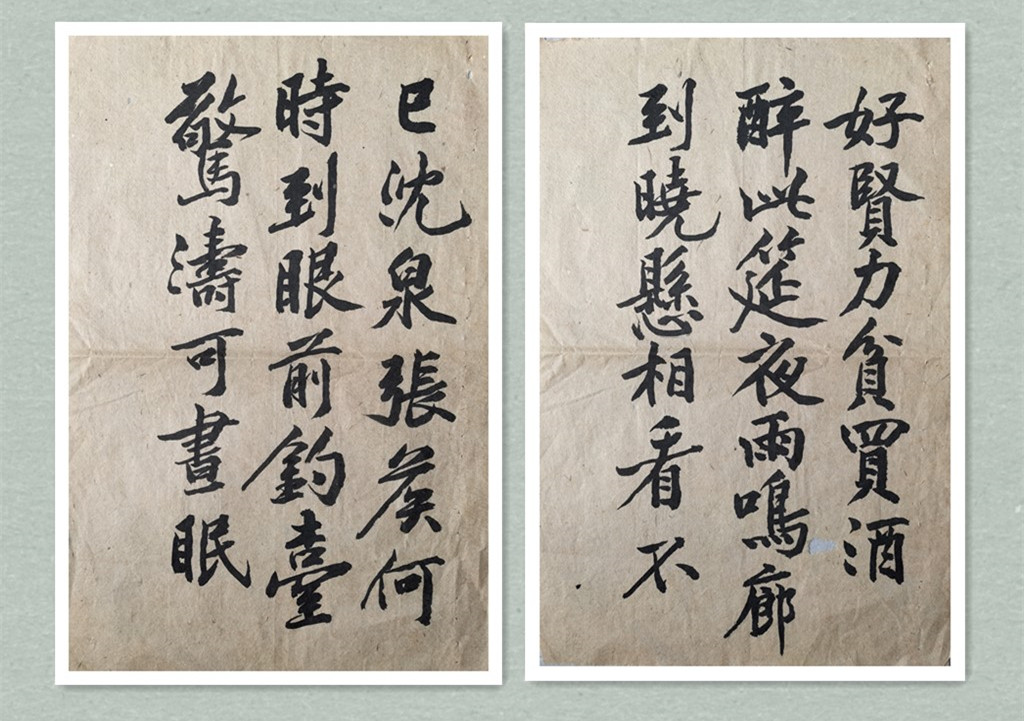 好賢力貧買酒
醉此筵夜雨鳴廊
到曉懸相看不
已沈泉張侯何
時到眼前釣臺
驚濤可晝眠